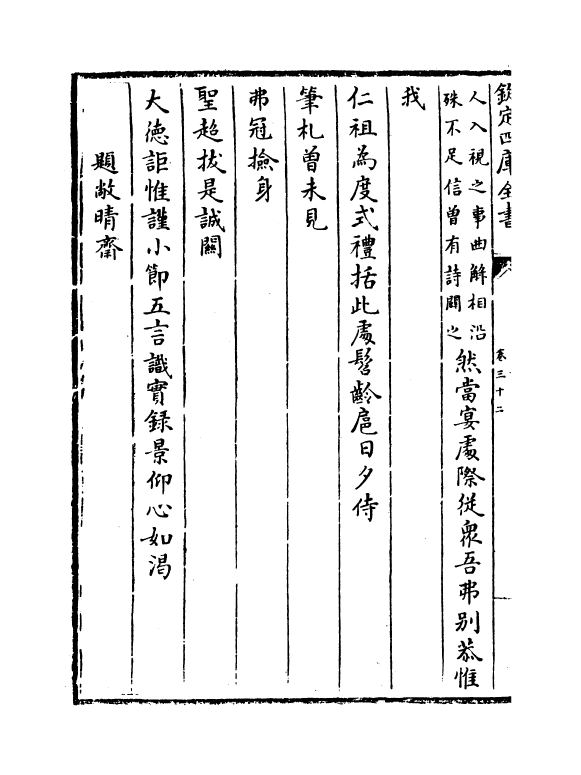 欽定四庫全書
卷三十二
人入視之事曲解相沿
殊不足信曾有詩闢之
然當宴處際從衆吾弗别恭惟
我
仁祖為度式禮括此處髫齡扈日夕侍
筆札曾未見
弗冠撿身
聖超拔是誠闗
大徳詎惟謹小節五言識實録景仰心如渴
題敞晴齋